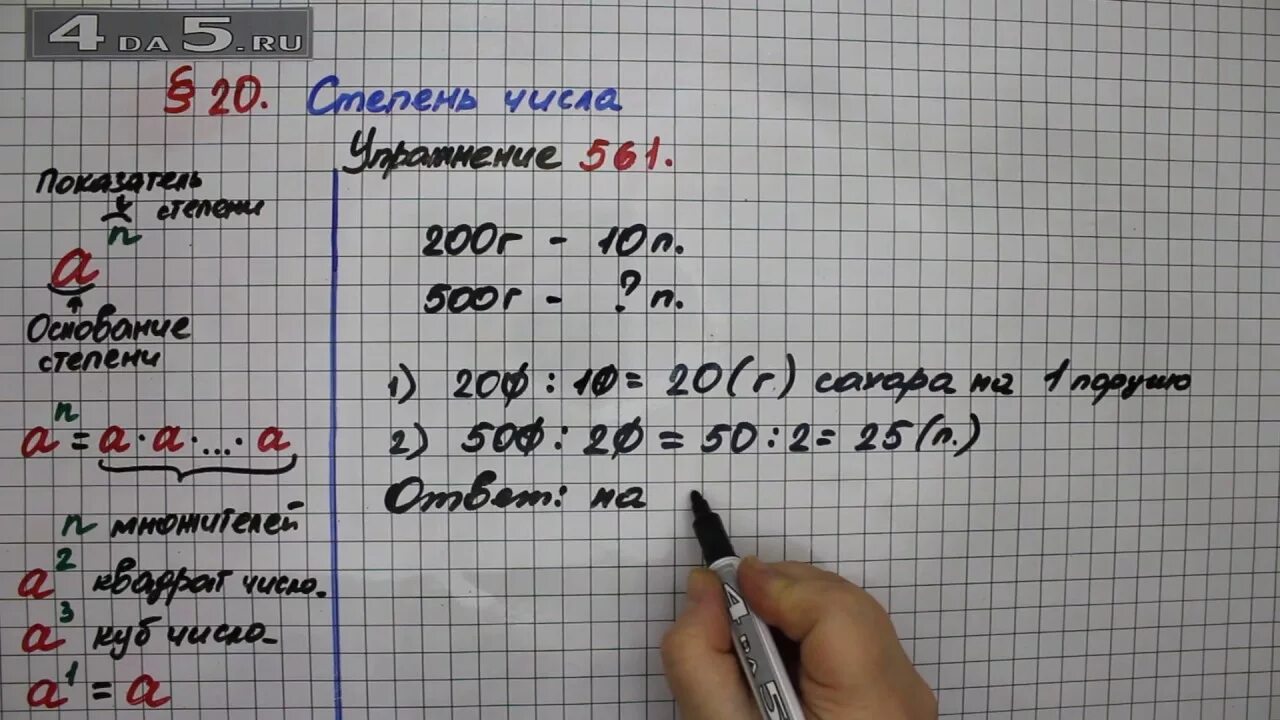 4DA5.RU
§ 20. Степень числа
Упражнение 561.
Показатель
степени
n
a
Основание
степени
aⁿ = a · a · ... · a
n множителей
a² квадрат число.
a³ куб число.
a¹ = a
200г - 10п.
500г - ? п.
1) 200 : 10 = 20(г.) сахара на 1 порцию
2) 500 : 20 = 50 : 2 = 25(п.)
Ответ: на
4DA5